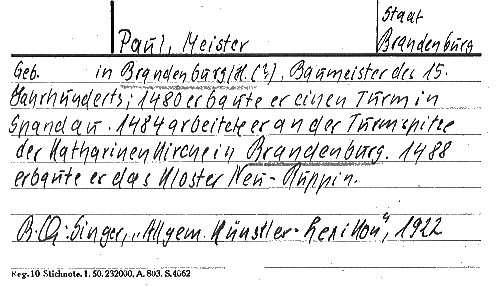 Staat
Paul, Meister Brandenburg
Geb. in Brandenburg/H. (?), Baumeister des 15.
Jahrhunderts; 1480 erbaute er einen Turm in
Spandau. 1484 arbeitete er an der Turmspitze
der Katharinenkirche in Brandenburg. 1488
erbaute er das Kloster Neu-Ruppin.
Singer, „Allgem. Künstler-Lexikon", 1922
Reg. 10 Stichnote. 1. 50. 232000, A. 803. S. 4062